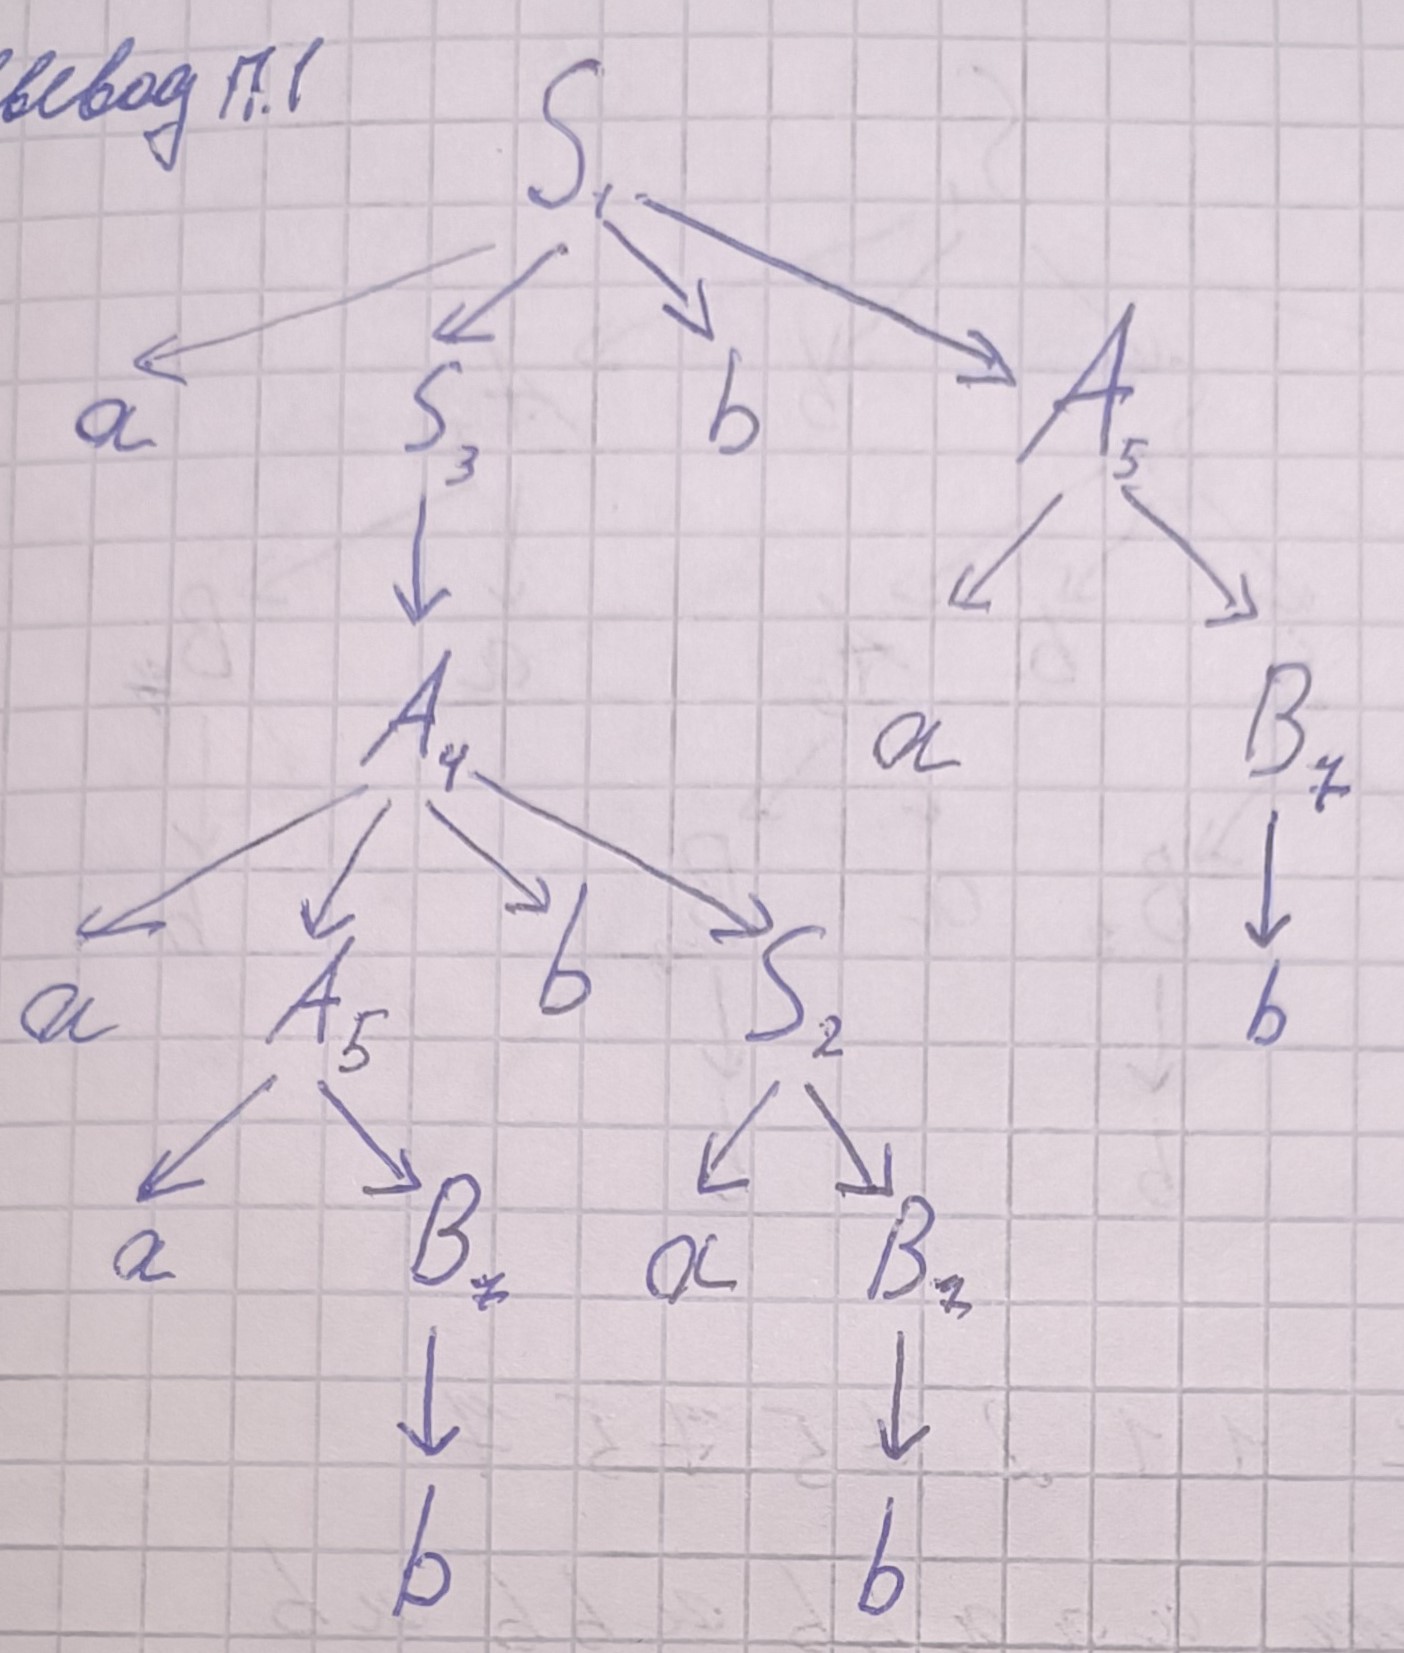 вывод п.1
S₁
a S₃ b A₅
A₄ a B₇
a A₅ b S₂ b
a B₇ a B₇
b b